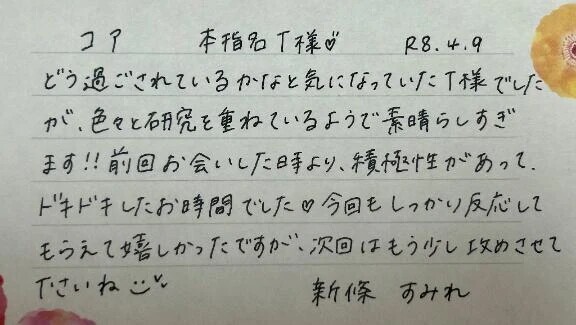 コア 本指名T様♡ R8.4.9
どう過ごされているかなと気になっていたT様でした
が、色々と研究を重ねているようで素晴らしすぎ
ます!!前回お会いした時より、積極性があって、
ドキドキしたお時間でした♡今回もしっかり反応して
もらえて嬉しかったですが、次回はもう少し攻めさせて
下さいね
新條 すみれ